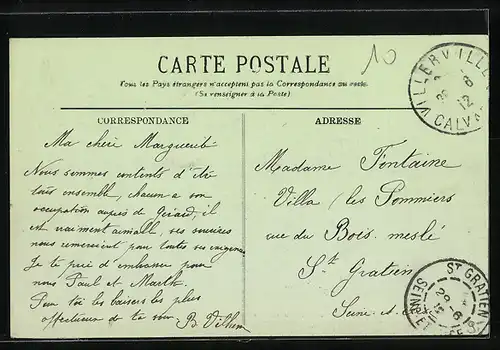 CARTE POSTALE
10
Tous les Pays étrangers n'acceptent pas la Correspondance au recto.
(Se renseigner à la Poste)
CORRESPONDANCE
Ma chère Marguerite
Nous sommes contents d'être
tous ensemble, chacun a son
occupation auprès de Gérard, il
est vraiment aimable, ses sourires
nous remercient pour toutes ses exigences
Je te prie d'embrasser pour
nous Paul et Marthe
Pour toi les baisers les plus
affectueux de ta
ADRESSE
Madame Fontaine
Villa (les Pommiers
rue du Bois meslé
St Gratien
Seine &
VILLERVILLE
6
12
CALVA
ST GRATIEN